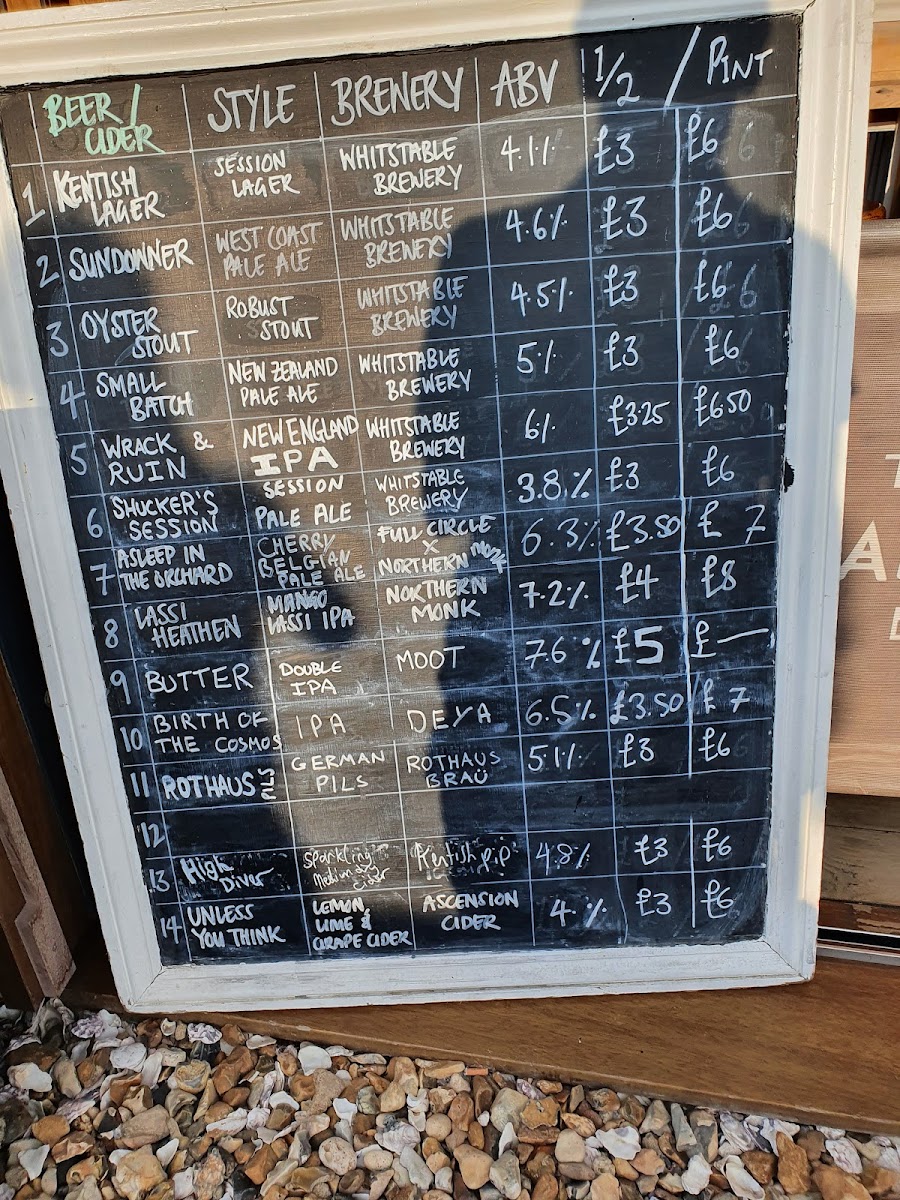 BEER/ CIDER STYLE BREWERY ABV 1/2 / PINT
1 KENTISH LAGER SESSION LAGER WHITSTABLE BREWERY 4.1% £3 £6
2 SUNDONNER WEST COAST PALE ALE WHITSTABLE BREWERY 4.6% £3 £6
3 OYSTER STOUT ROBUST STOUT WHITSTABLE BREWERY 4.5% £3 £6
4 SMALL BATCH NEW ZEALAND PALE ALE WHITSTABLE BREWERY 5% £3 £6
5 WRACK & RUIN NEW ENGLAND IPA WHITSTABLE BREWERY 6% £3.25 £6.50
6 SHUCKER'S SESSION SESSION PALE ALE WHITSTABLE BREWERY 3.8% £3 £6
7 ASLEEP IN THE ORCHARD CHERRY BELGIAN PALE ALE FULL CIRCLE X NORTHERN MONK 6.3% £3.50 £7
8 LASSI HEATHEN MANGO LASSI IPA NORTHERN MONK 7.2% £4 £8
9 BUTTER DOUBLE IPA MOOT 7.6% £5 £—
10 BIRTH OF THE COSMOS IPA DEYA 6.5% £3.50 £7
11 ROTHAUS PILS GERMAN PILS ROTHAUS BRAÜ 5.1% £3 £6
12
13 High Diver Sparkling Medium Dry Cider Kentish Pip 4.8% £3 £6
14 UNLESS YOU THINK LEMON, LIME & GRAPE CIDER ASCENSION CIDER 4.% £3 £6